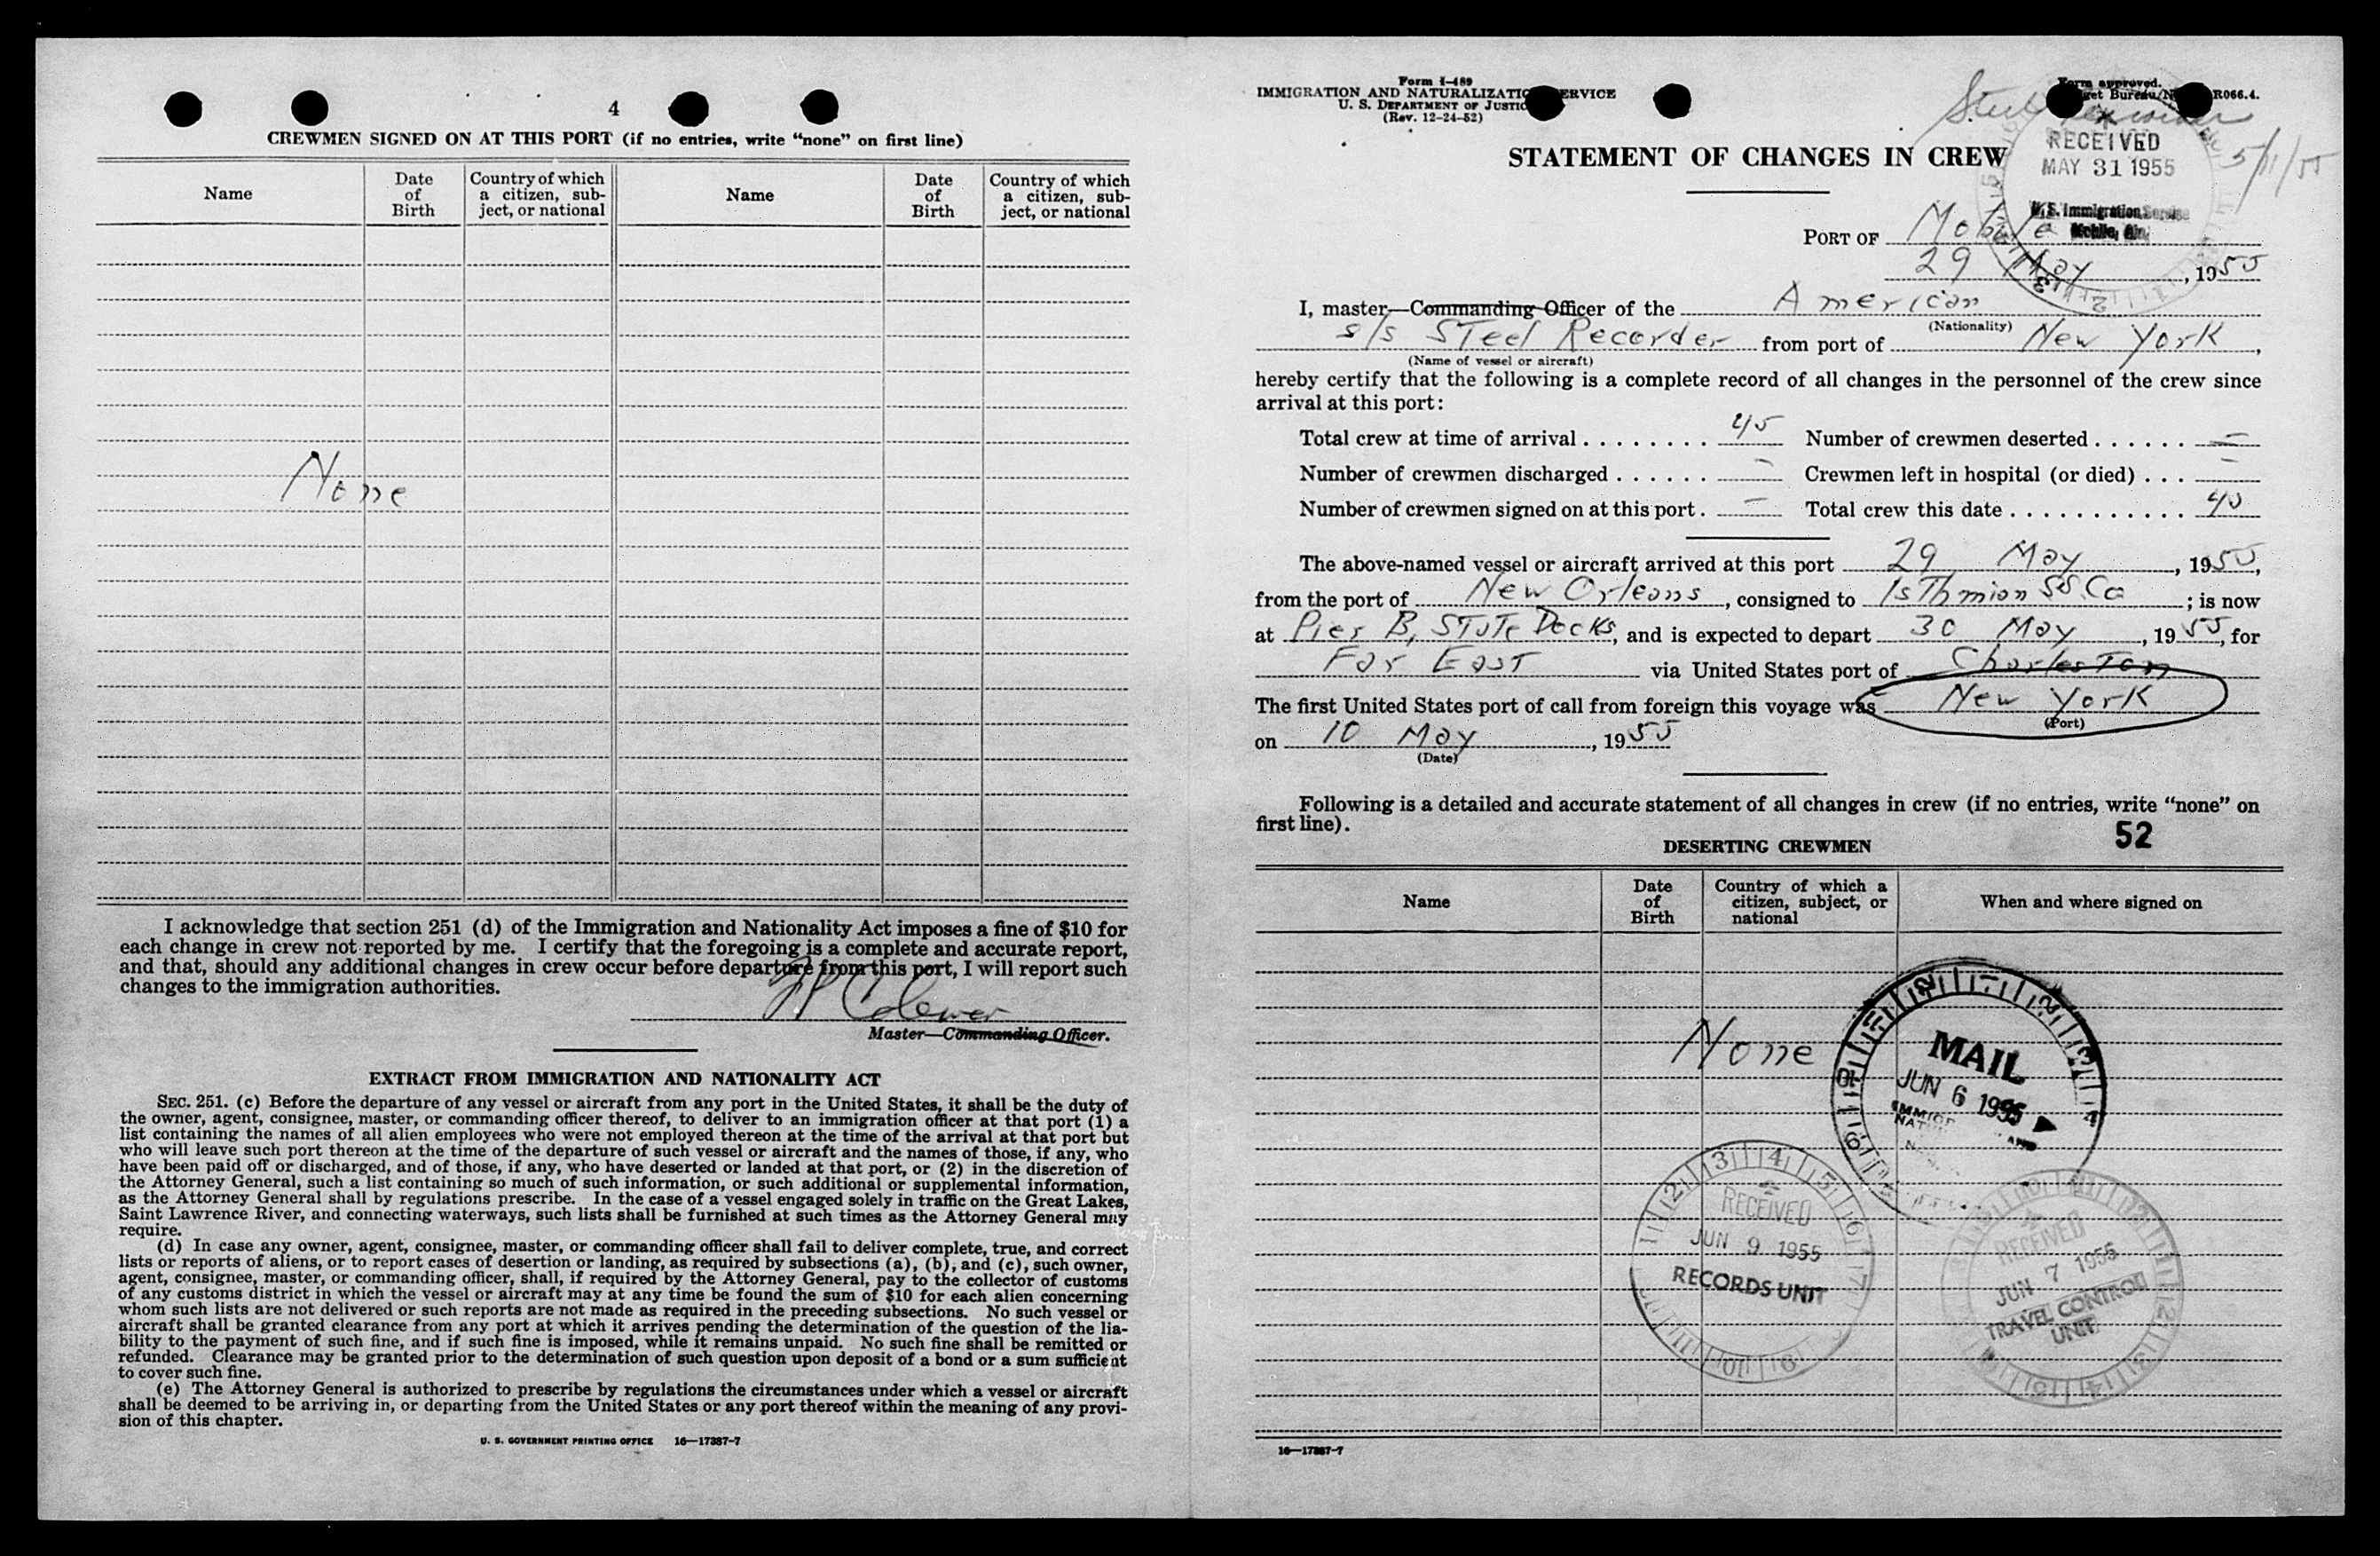 4
CREWMEN SIGNED ON AT THIS PORT (if no entries, write “none” on first line)
Name
Date of Birth
Country of which a citizen, subject, or national
Name
Date of Birth
Country of which a citizen, subject, or national
None
I acknowledge that section 251 (d) of the Immigration and Nationality Act imposes a fine of $10 for
each change in crew not reported by me. I certify that the foregoing is a complete and accurate report,
and that, should any additional changes in crew occur before departure from this port, I will report such
changes to the immigration authorities.
Master—Commanding Officer.
EXTRACT FROM IMMIGRATION AND NATIONALITY ACT
SEC. 251. (c) Before the departure of any vessel or aircraft from any port in the United States, it shall be the duty of
the owner, agent, consignee, master, or commanding officer thereof, to deliver to an immigration officer at that port (1) a
list containing the names of all alien employees who were not employed thereon at the time of the arrival at that port but
who will leave such port thereon at the time of the departure of such vessel or aircraft and the names of those, if any, who
have been paid off or discharged, and of those, if any, who have deserted or landed at that port, or (2) in the discretion of
the Attorney General, such a list containing so much of such information, or such additional or supplemental information,
as the Attorney General shall by regulations prescribe. In the case of a vessel engaged solely in traffic on the Great Lakes,
Saint Lawrence River, and connecting waterways, such lists shall be furnished at such times as the Attorney General may
require.
(d) In case any owner, agent, consignee, master, or commanding officer shall fail to deliver complete, true, and correct
lists or reports of aliens, or to report cases of desertion or landing, as required by subsections (a), (b), and (c), such owner,
agent, consignee, master, or commanding officer, shall, if required by the Attorney General, pay to the collector of customs
of any customs district in which the vessel or aircraft may at any time be found the sum of $10 for each alien concerning
whom such lists are not delivered or such reports are not made as required in the preceding subsections. No such vessel or
aircraft shall be granted clearance from any port at which it arrives pending the determination of the question of the lia-
bility to the payment of such fine, and if such fine is imposed, while it remains unpaid. No such fine shall be remitted or
refunded. Clearance may be granted prior to the determination of such question upon deposit of a bond or a sum sufficient
to cover such fine.
(e) The Attorney General is authorized to prescribe by regulations the circumstances under which a vessel or aircraft
shall be deemed to be arriving in, or departing from the United States or any port thereof within the meaning of any provi-
sion of this chapter.
U. S. GOVERNMENT PRINTING OFFICE 16—17387-7
Form I-489
IMMIGRATION AND NATURALIZATION SERVICE
U. S. DEPARTMENT OF JUSTICE
(Rev. 12-24-52)
Form approved.
R066.4.
5/11/55
STATEMENT OF CHANGES IN CREW
RECEIVED
MAY 31 1955
U.S. Immigration Service
Mobile, Ala.
PORT OF Mobile
29 May, 1955
I, master—Commanding Officer of the American
(Nationality)
s/s Steel Recorder from port of New York,
(Name of vessel or aircraft)
hereby certify that the following is a complete record of all changes in the personnel of the crew since
arrival at this port:
Total crew at time of arrival 45 Number of crewmen deserted —
Number of crewmen discharged — Crewmen left in hospital (or died) —
Number of crewmen signed on at this port — Total crew this date 45
The above-named vessel or aircraft arrived at this port 29 May, 1955,
from the port of New Orleans, consigned to Isthmian SS Co; is now
at Pier B, State Docks, and is expected to depart 30 May, 1955, for
Far East via United States port of Charleston
The first United States port of call from foreign this voyage was New York
(Port)
on 10 May, 1955
(Date)
Following is a detailed and accurate statement of all changes in crew (if no entries, write “none” on
first line).
52
DESERTING CREWMEN
Name
Date of Birth
Country of which a citizen, subject, or national
When and where signed on
None
MAIL
JUN 6 1955
RECEIVED
JUN 9 1955
RECORDS UNIT
RECEIVED
JUN 7 1955
TRAVEL CONTROL
UNIT
16—17387-7